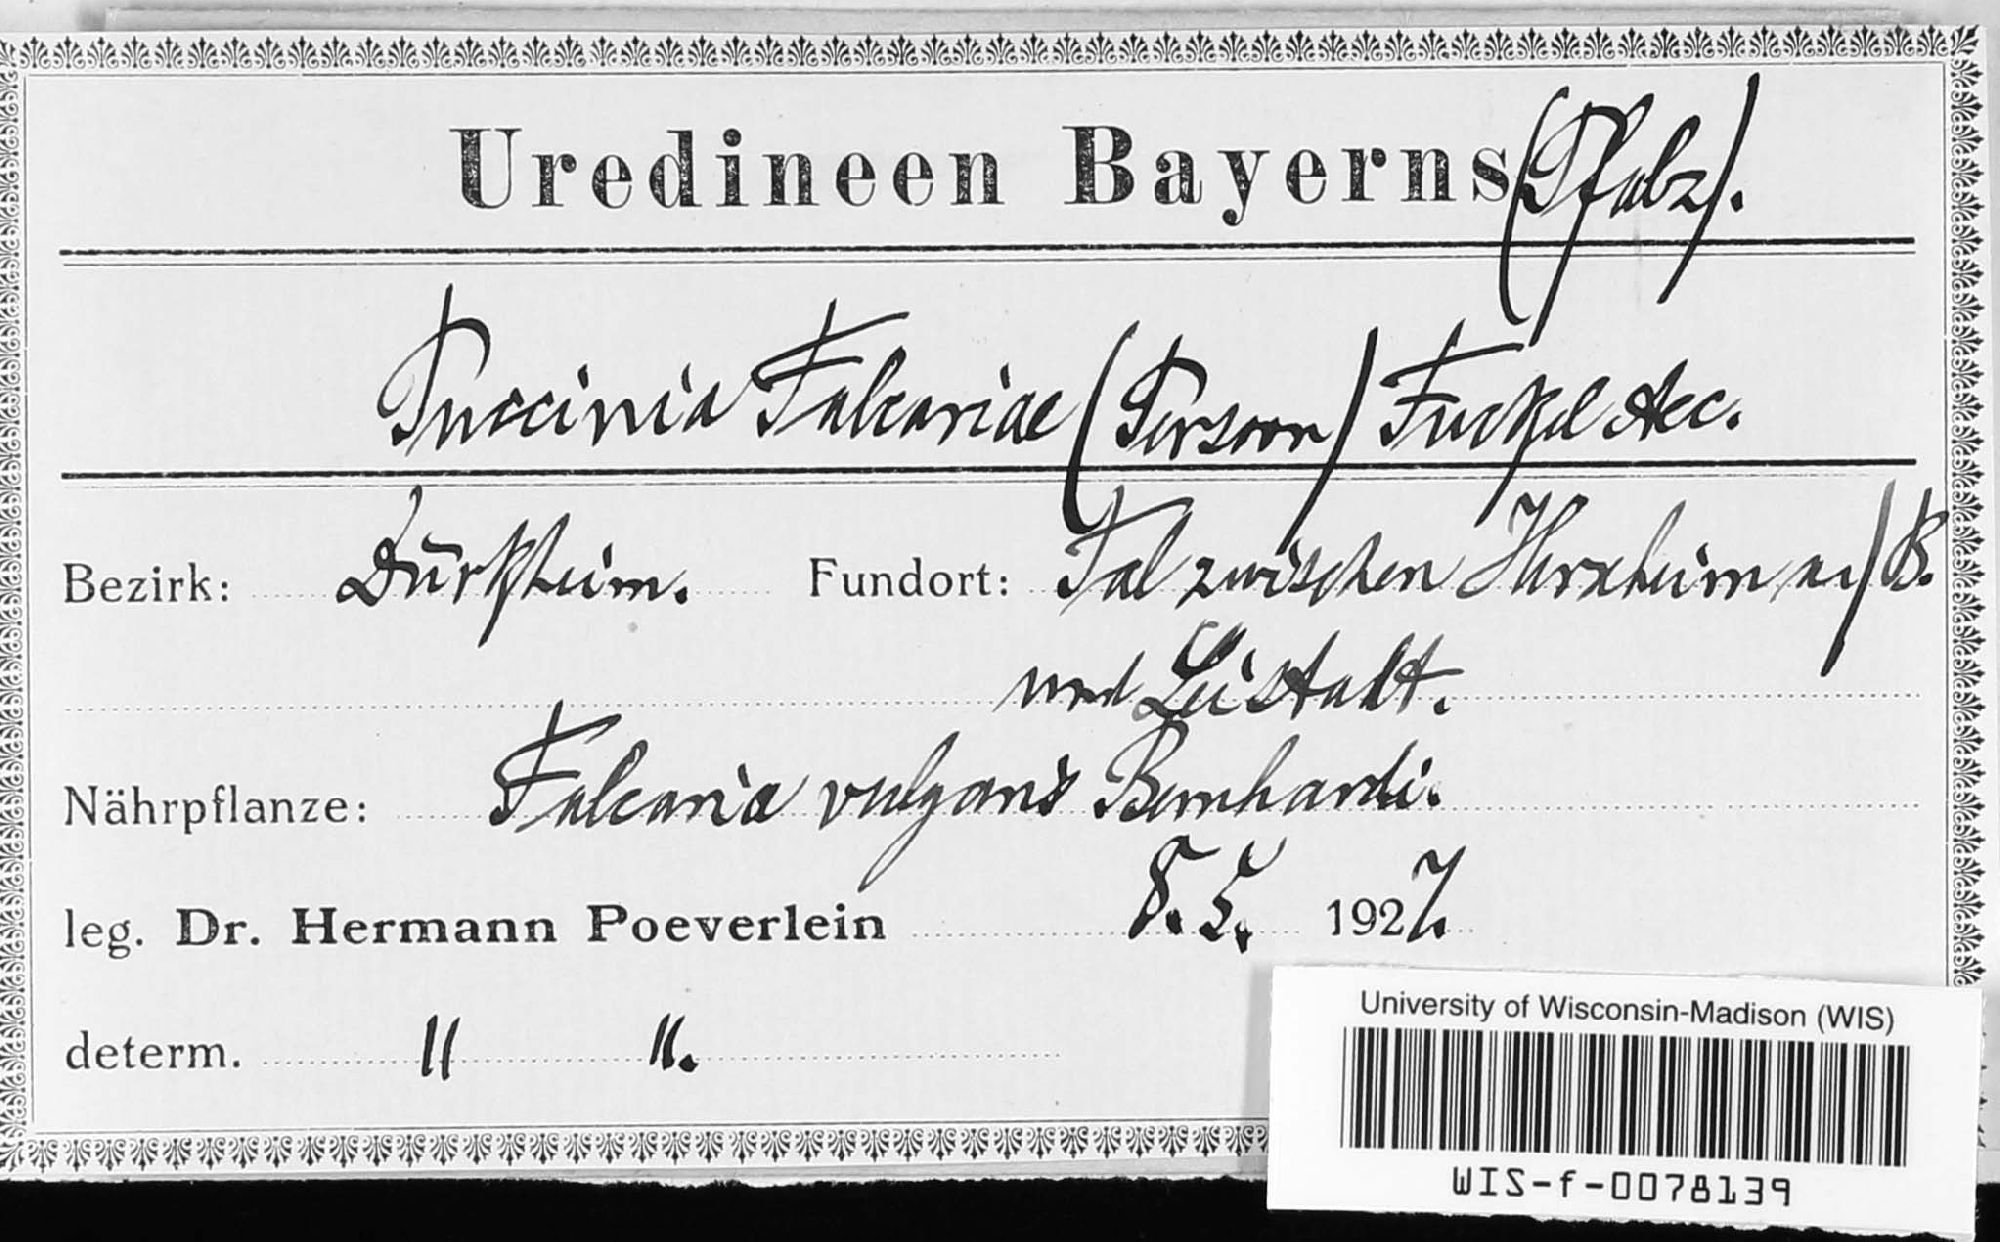 Uredineen Bayerns (Pfalz).
Puccinia Falcariae (Persoon) Fuckel Aec.
Bezirk: Dürkheim. Fundort: Tal zwischen Herxheim a/B.
und Leistadt.
Nährpflanze: Falcaria vulgaris Bernhardi.
leg. Dr. Hermann Poeverlein 8. 5. 1927.
determ. " ".
University of Wisconsin-Madison (WIS)
WIS-f-0078139